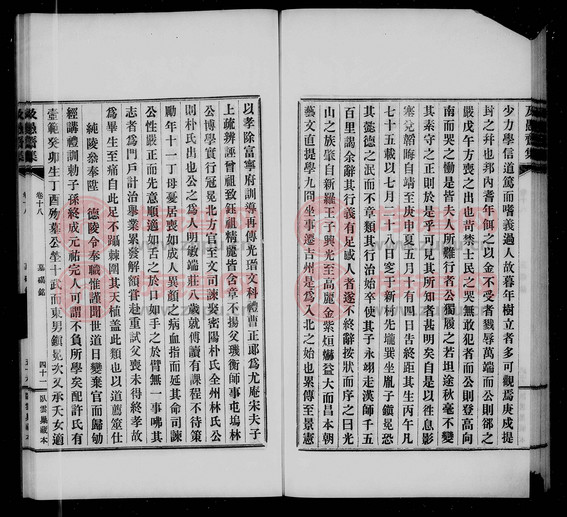 少力學信道篤而嗜義過人故暮年樹立者多可觀爲庚戌提
封之幷也邦內耆年餌之以金不受者戮辱萬端而公則郤之
嚴戊午方喪之出也苛禁士民之哭無敢犯者而公則登高向
南而哭之慟是皆夫人所難行者公獨履之若坦途秋毫不變
其素守之正則於是乎可見其所知者甚明矣自是以往息影
塞兌韜晦自靖至庚申夏五月十有四日告終距其生丙午凡
七十五載以七月二十八日窆于新村先壠巽坐胤子鎭冕恐
其懿德之泯而不章類其行治始卒使其子永翊走漢師千五
百里謁余辭其行義有足感人者遂不終辭按狀而序之曰光
山之族肇自新羅王子興光至高麗金紫烜赫益大而昌本朝
藝文直提學九問坐事遷吉州是爲入北之始也串傳至景憲
以孝除富寧府訓導再傳光瑨文科禮曹正郞爲尤庵宋夫子
上疏辨誣曾祖致鈺祖精麗皆含章不揚父璣衡師事屯塢林
公博學實行冠冕北方官至文司諫妻密陽朴氏全州林氏公
則朴氏出也公之爲人明敏端莊八歲就傅讀有課程不待策
勵年十一丁母憂居喪如成人異顏之病血指而延其命司諫
公性嚴正而先意順適如舌之於口如手之於臂無一事咈其
志者爲門戶計治擧業累發鄕解嘗赴重試父喪未得終孝故
爲畢生至痛自此足不躡棘圍其天植蓋此類也以道薦筮仕
純陵參奉陞 德陵令奉職惟謹閒世道日變棄官而歸劬
經講禮訓勅子孫終成完人可謂不負所學矣配許氏有
壼範癸卯生丁酉歿墓公塋十武而東男鎭冕次承夫女適
卷十八
墓碣銘
四十一
臥雲巢藏本